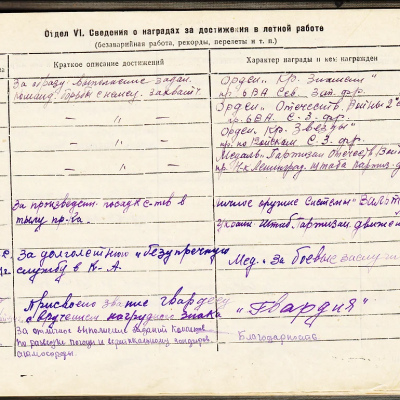 Отдел VI. Сведения о наградах за достижения в летной работе
(безаварийная работа, рекорды, перелеты и т. п.)
Краткое описание достижений
Характер награды и кем награжден
За образц. выполнение задан.
команд. борьбе с немец. захватч.
Орден „Кр. Знамени"
пр. 6 ВА Сев. Зап. фр.
— „ — „ —
Орден „Отечеств. Войны 2
пр. 6 ВА С. З. фр.
— „ — „ —
Орден „Кр. Звезды"
пр. по Войскам С. З. фр.
— „ — „ —
Медаль „Партизан Отечеств. Вой
пр. Н-к Ленинград. штаба партиз.
За производство посадк с-тов в
тылу пр-ка.
личное оружие системы
Штаб. Партизан. движен
За долголетнюю „безупречную
службу в К. А.
Мед. „За боевые заслуги
Присвоено звание гвардеец
с вручением нагрудного знака
„Гвардия"
За отличное выполнение заданий
по разведке погоды и
Благодарность